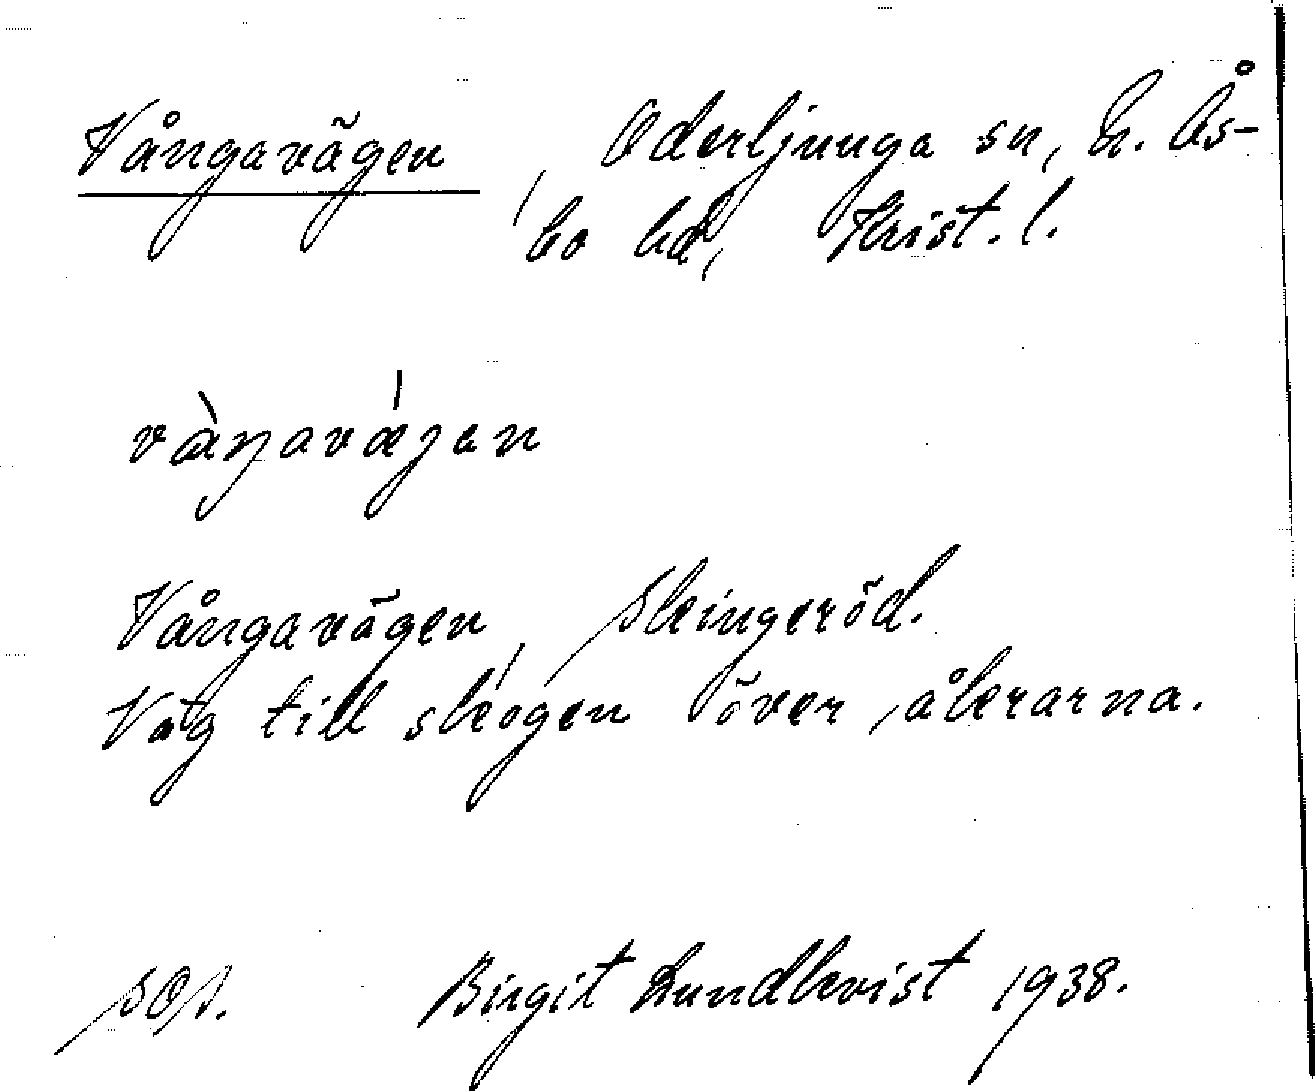 Vångavägen, Oderljunga sn, N. Ås-
bo hd, Krist. l.
vàŋavǽgen
Vångavägen, Skingeröd.
Väg till skogen över åkrarna.
SOA. Birgit Lundkvist 1938.